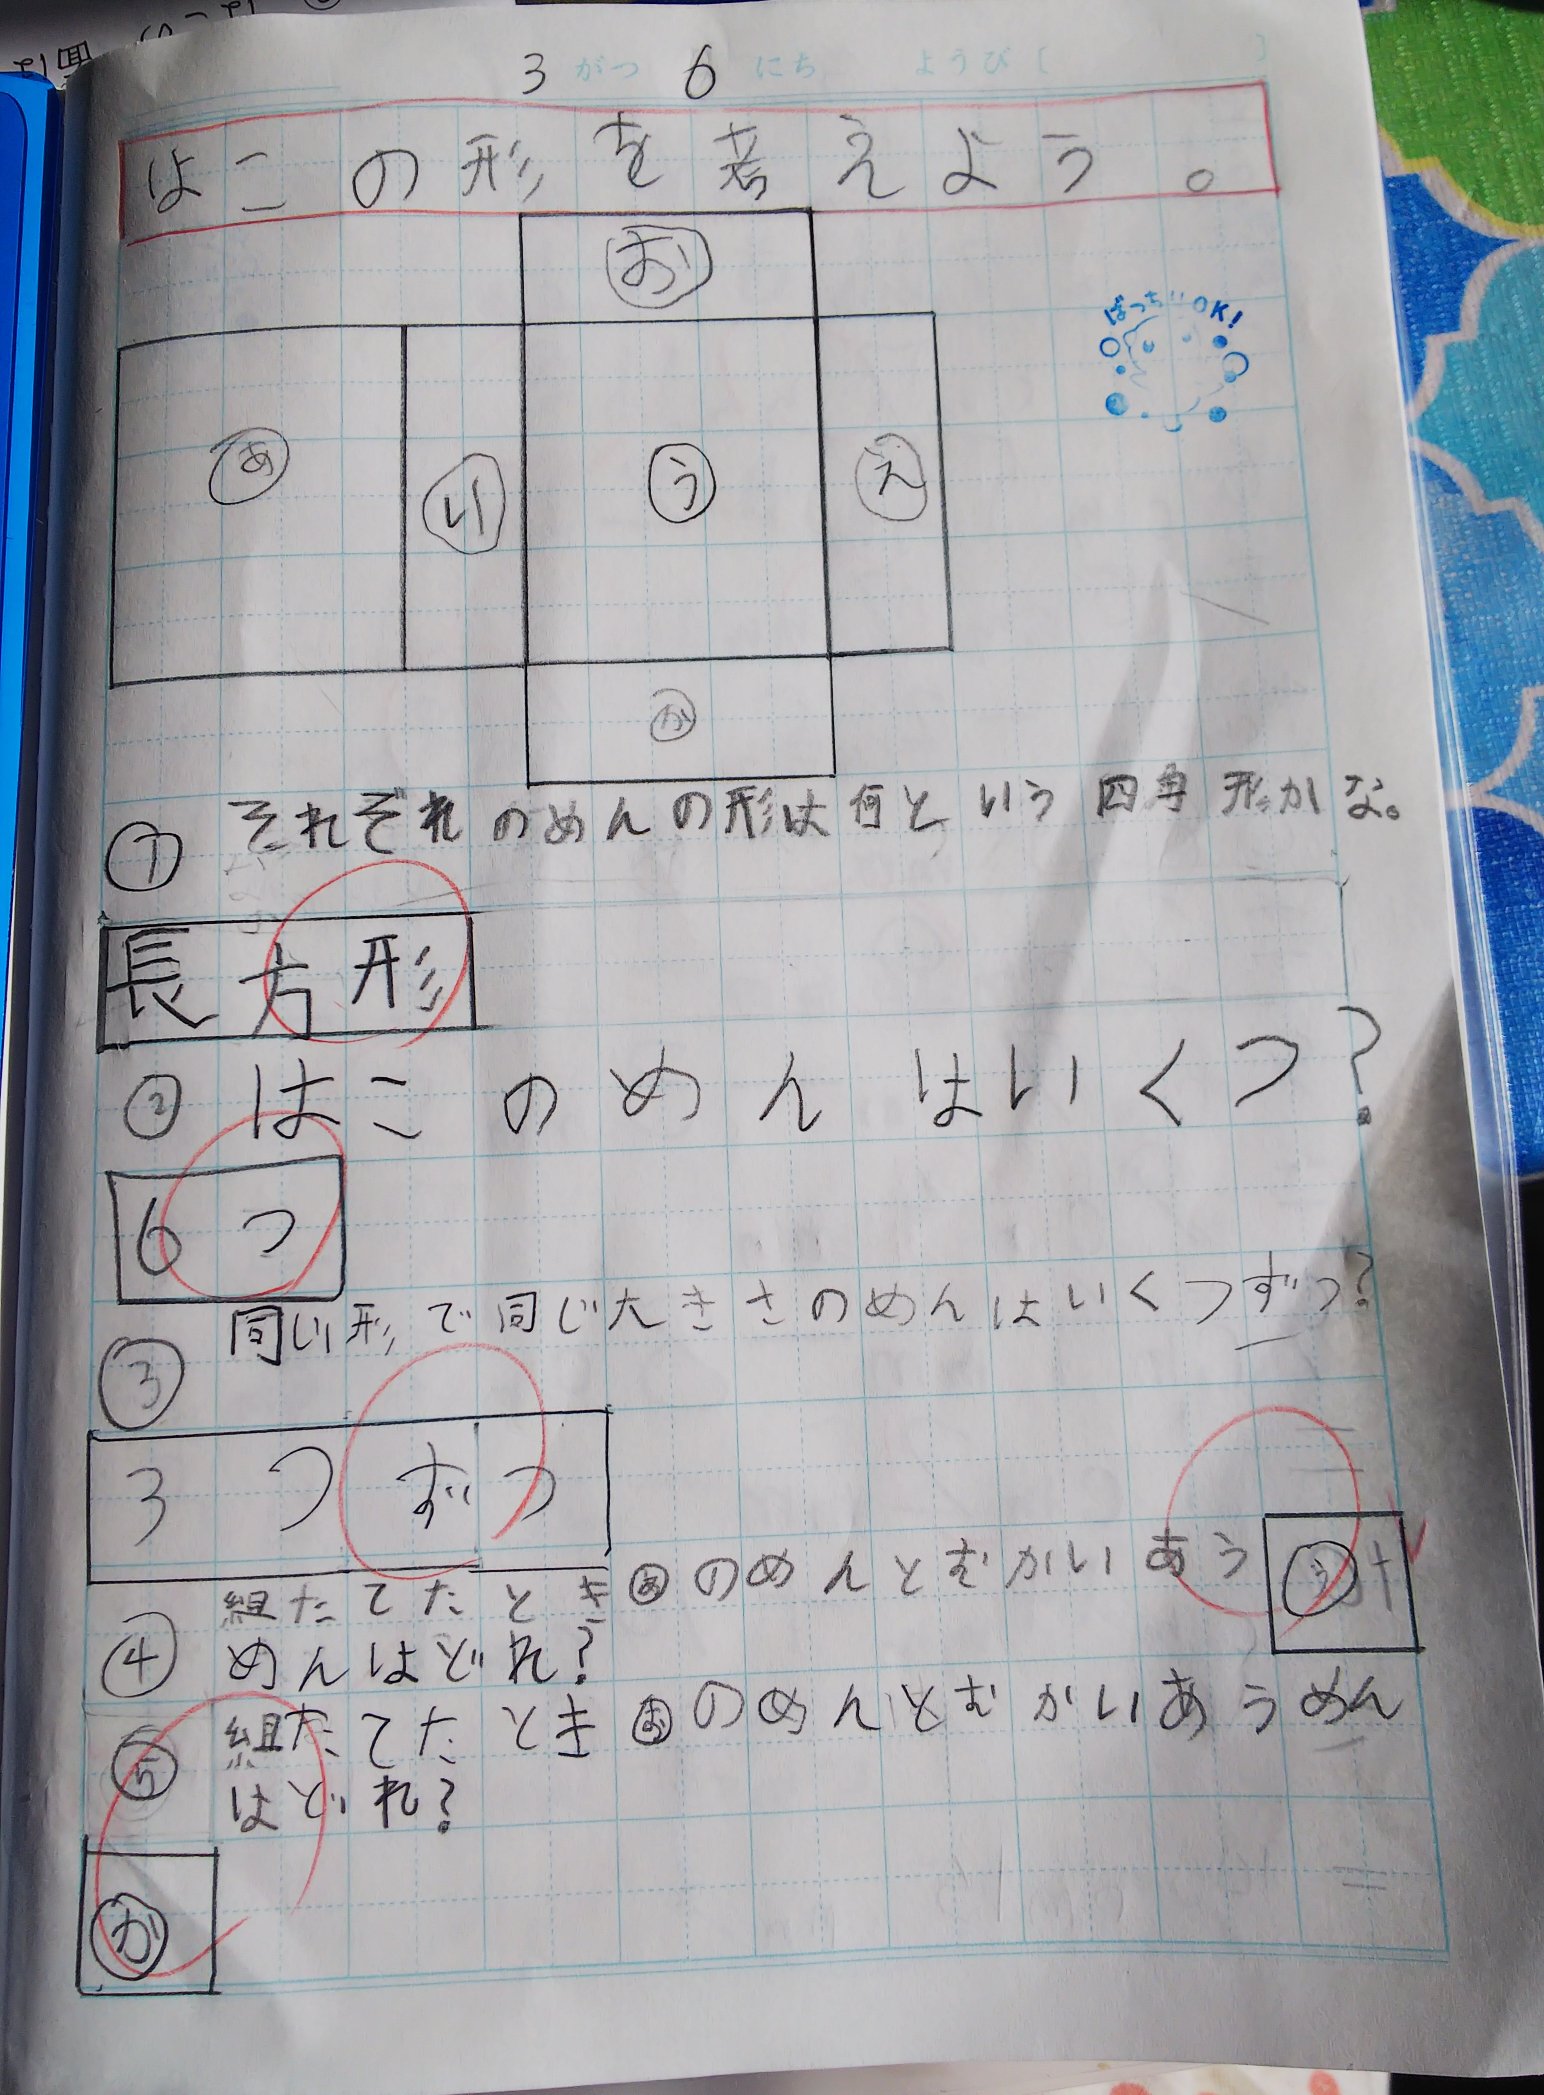 3 がつ 6 にち ようび [ ]
はこの形を考えよう。
お
ばっちりOK!
あ い う え
か
① それぞれのめんの形は何という四角形かな。
長方形
② はこのめんはいくつ?
6つ
③ 同じ形で同じ大きさのめんはいくつずつ?
3つずつ
④ 組たてたときあのめんとむかいあう
めんはどれ?
う
⑤ 組たてたときおのめんとむかいあうめん
はどれ?
か